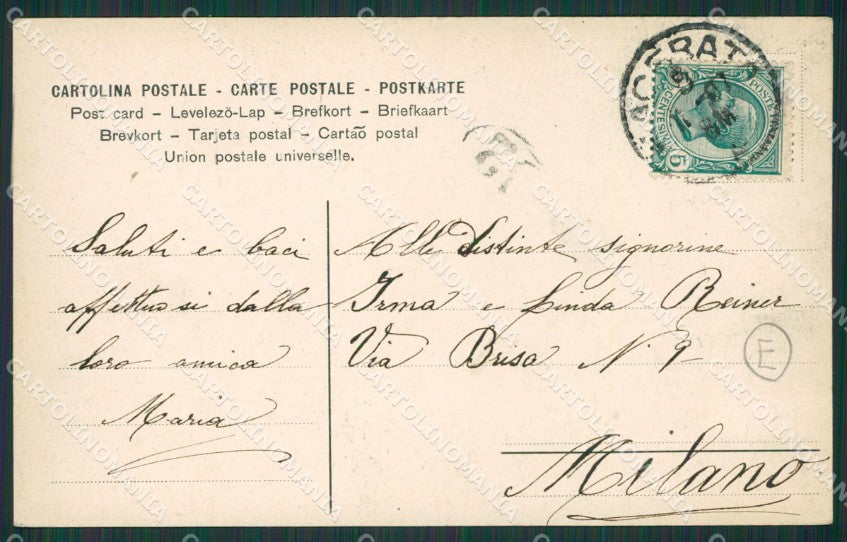 CARTOLINA POSTALE - CARTE POSTALE - POSTKARTE
Post card – Levelezö-Lap – Brefkort – Briefkaart
Brevkort – Tarjeta postal – Cartaõ postal
Union postale universelle.
MACERATA
POSTE ITALIANE
CENTESIMI
5
Saluti e baci
affettuosi dalla
loro amica
Maria
Alle distinte signorine
Irma e Linda Reiner
Via Brisa N. 9
Milano
E
CARTOLINOMANIA